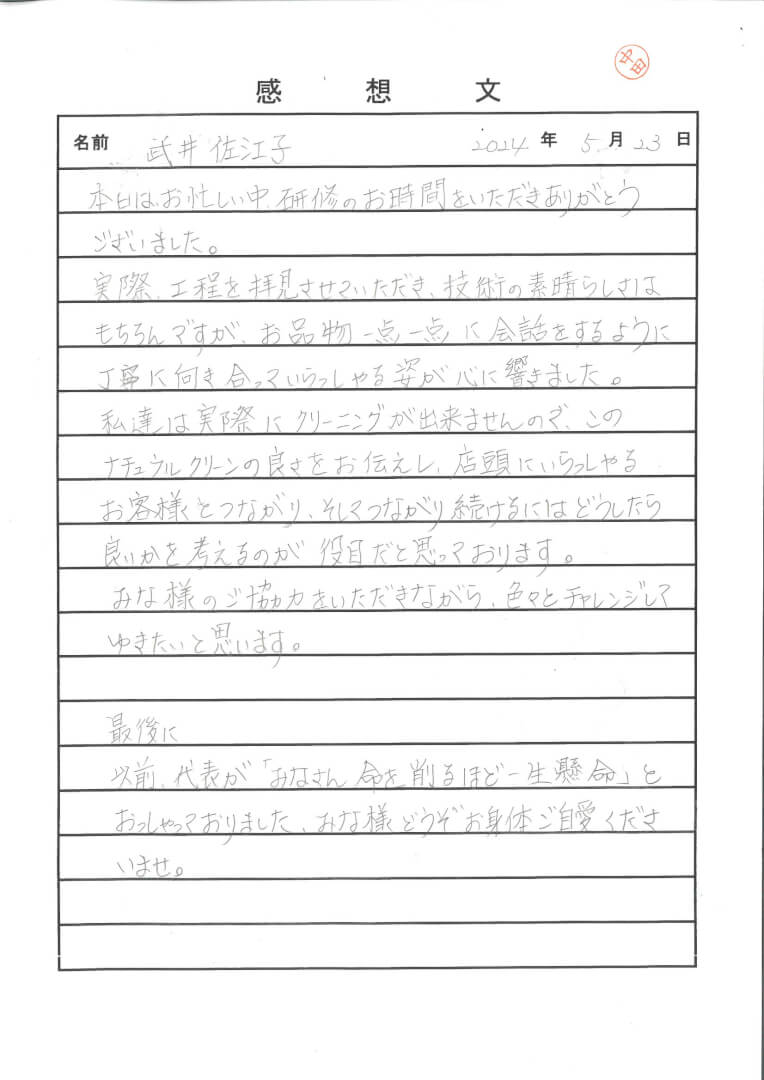 中田
感想文
名前 武井 佐江子 2024年 5月 23日
本日は、お忙しい中、研修のお時間をいただきありがとう
ございました。
実際、工程を拝見させていただき、技術の素晴らしさは
もちろんですが、お品物一点一点に会話をするように
丁寧に向き合っていらっしゃる姿が心に響きました。
私達は実際にクリーニングが出来ませんので、この
ナチュラルクリーンの良さをお伝えし、店頭にいらっしゃる
お客様とつながり、そしてつながり続けるにはどうしたら
良いかを考えるのが役目だと思っております。
みな様のご協力をいただきながら、色々とチャレンジして
ゆきたいと思います。
最後に
以前、代表が「みなさん命を削るほど一生懸命」と
おっしゃっておりました、みな様どうぞお身体ご自愛くださ
いませ。